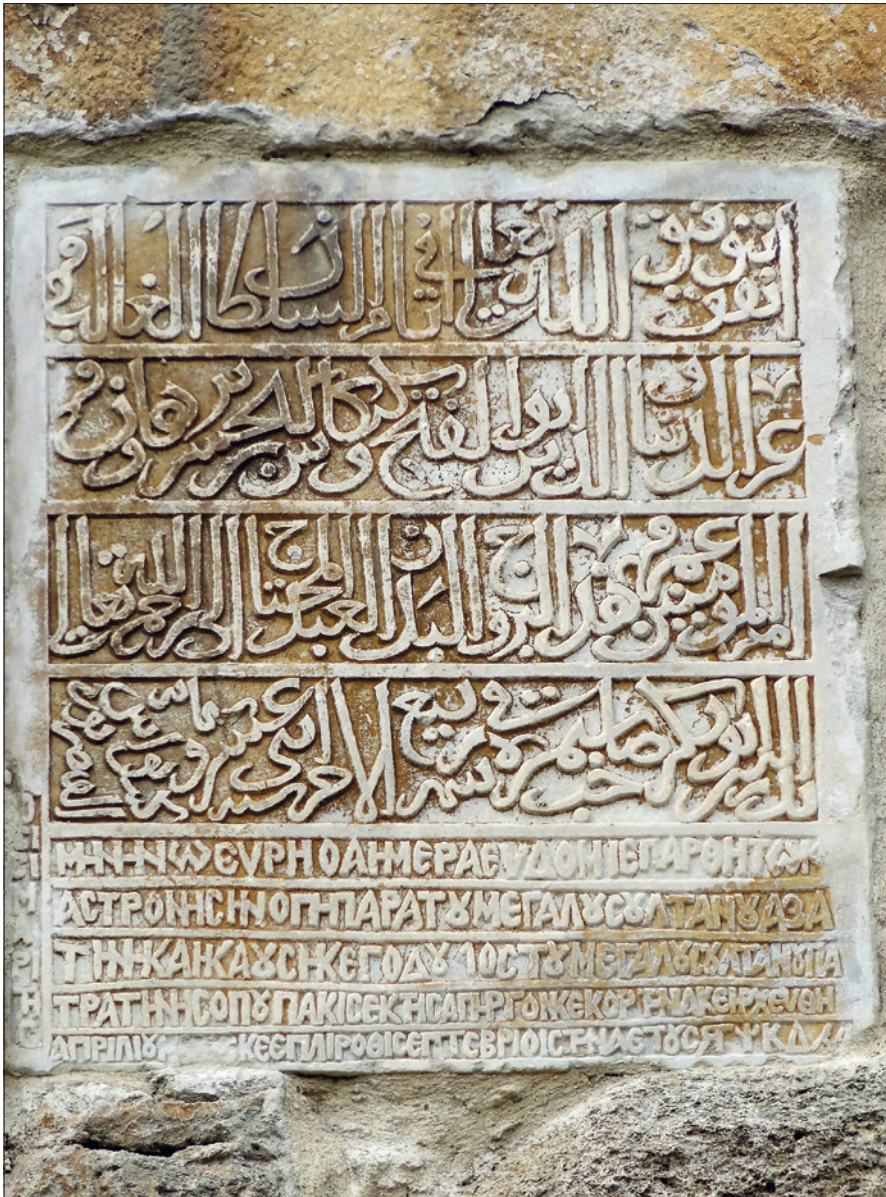 اتفق بتوفيق الله تعالى في أيام السلطان الغالب
عز الدنيا والدين أبو الفتح كيكاوس بن كيخسرو برهان
أمير المؤمنين هذا البرج والبدن العبد المحتاج إلى رحمة الله تعالى
بدر الدين أبو بكر صاحب سمره في ربيع الآخر سنة اثنى عشر وستمائة
ΜΗΝΗΝΙΩΕΥΡΗΟΑΗΜΕΡΑΕΥΔΟΜΙΕΠΑΡΘΗΤΟΚ
ΑCΤΡΟΝΗCΗΝΟΠΗΠΑΡΑΤȣΜΕΓΑΛȣCȣΛΤΑΝȣΑΖΑ
ΤΙΝΗΚΑΙΚΑȣCΗΚΕΓΟΔȣΛΟCΤȣΜΕΓΑΛȣCȣΛΤΑΝȣΠΑ
ΤΡΑΤΗΝΗCΟΠȣΠΑΚΙCΕΚΤΗCΑΠΗΡΓΟΝΚΕΚΟΡΤΗΝΑΚΕΗΡΧΕΥΘΗ
ΑΠΡΙΛΙȣ ΚΕΕΠΛΙΡΟΘΙCΕΠΤΕΒΡΙΟΙCΤΗΝΑΕΤȣCϚΨΚΔ